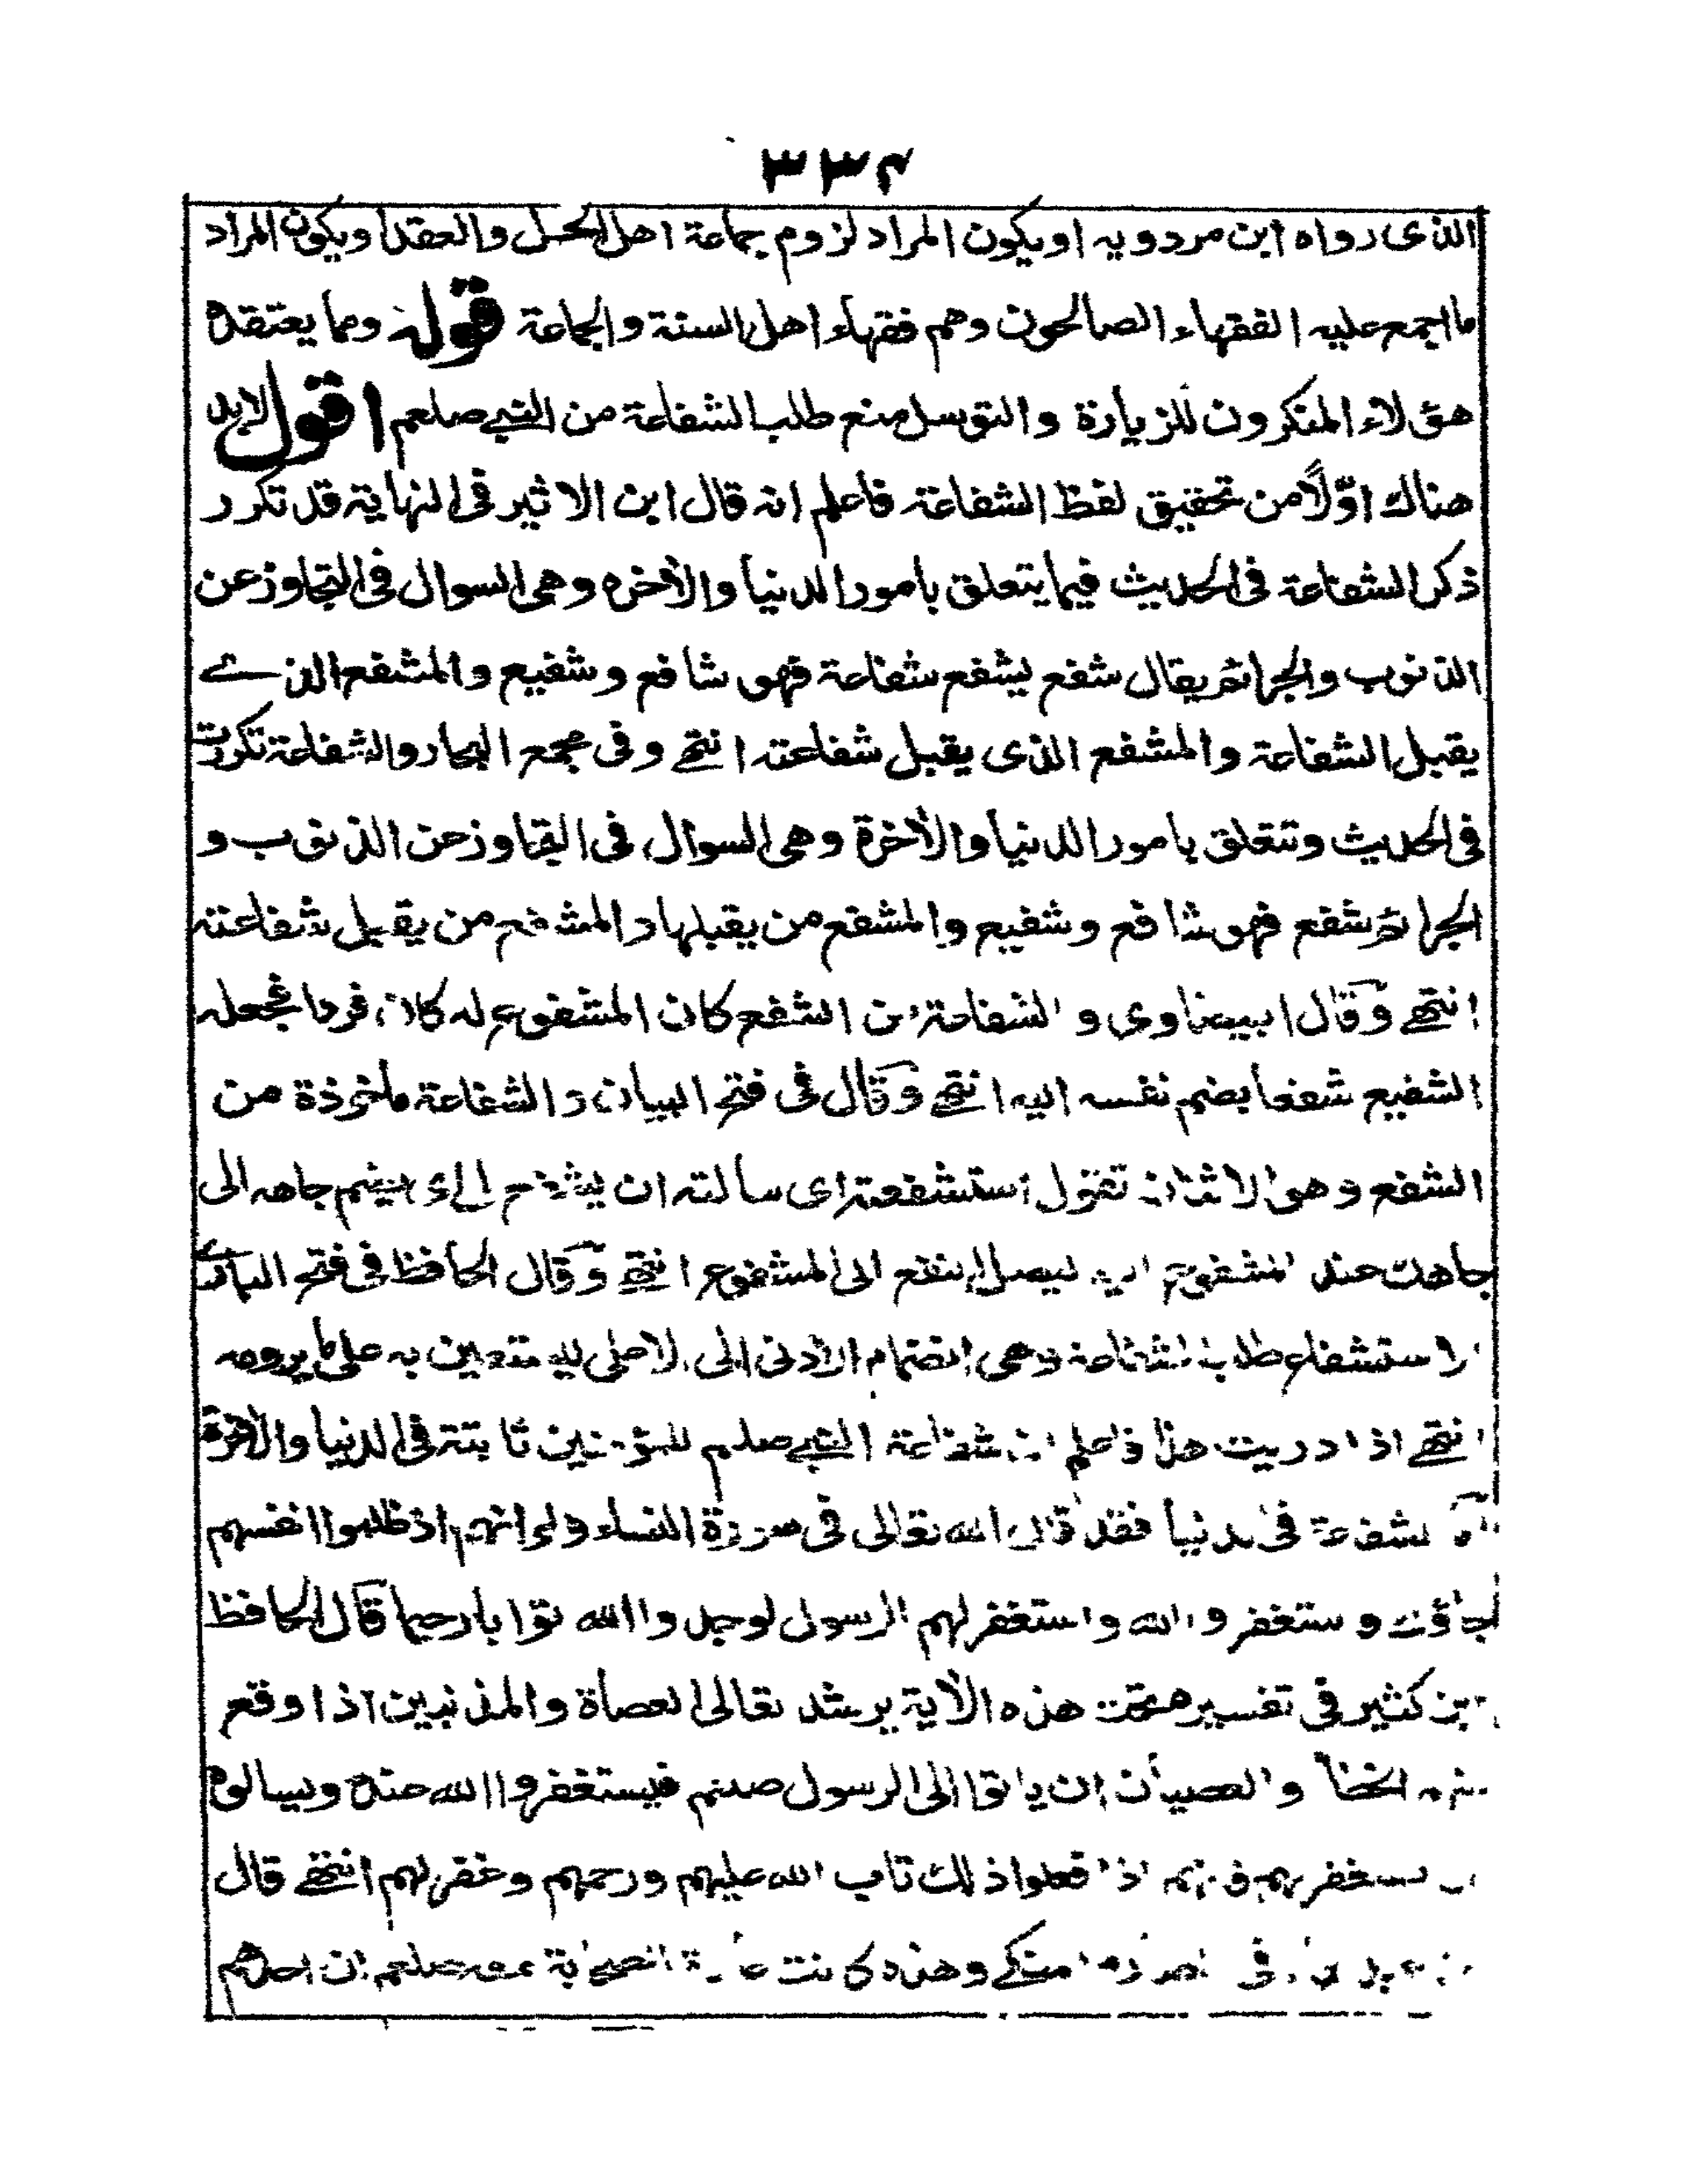 ٣٣٤
الذى رواه ابن مردويه او يكون المراد لزوم جماعة اهل الحل والعقد او يكون المراد
ما اجمع عليه الفقهاء الصالحون وهم فقهاء اهل السنة والجماعة قوله ومما يعتقده
هؤلاء المنكرون للزيارة والتوسل منع طلب الشفاعة من النبي صلعم اقول لابد
هناك اوّلاً من تحقيق لفظ الشفاعة فاعلم انه قال ابن الاثير فى النهاية قد تكرر
ذكر الشفاعة فى الحديث فيما يتعلق بامور الدنيا والأخره وهى السوال فى التجاوز عن
الذنوب والجرائم يقال شفع يشفع شفاعة فهو شافع وشفيع والمشفع الذے
يقبل الشفاعة والمشفع الذى يقبل شفاعته انتهى وفى مجمع البحار والشفاعة تكررت
فى الحديث وتتعلق بامور الدنيا والأخرة وهى السوال فى التجاوز عن الذنوب و
الجرائم شفع فهو شافع وشفيع والمشفع من يقبلها والمشفع من يقبل شفاعته
انتهى وقال البيضاوى والشفاعة من الشفع كان المشفوع له كان فردا فجعله
الشفيع شفعا بضم نفسه اليه انتهى وقال فى فتح البيان والشفاعة ماخوذة من
الشفع وهو الاثنان تقول استشفعته اى سالته ان يشفع لى اى يضم جاهه الى
جاهك عند المشفوع اليه ليصل النفع الى المشفوع انتهى وقال الحافظ فى فتح البارے
الاستشفاع طلب الشفاعة وهى انضمام الادنى الى الاعلى ليستعين به على ما يرومه
انتهى اذا دريت هذا فاعلم ان شفاعة النبي صلعم للمؤمنين ثابتة فى الدنيا والأخرة
شفاعة فى الدنيا فقد قال الله تعالى فى سورة النساء ولو انهم اذ ظلموا انفسهم
جاؤك واستغفروا الله واستغفر لهم الرسول لوجدوا الله توابا رحيما قال الحافظ
ابن كثير فى تفسيره تحت هذه الأية يرشد تعالى العصاة والمذنبين اذا وقع
منهم الخطأ والعصيان ان ياتوا الى الرسول صلعم فيستغفروا الله عنده ويسالوه
ان يستغفر لهم فانهم اذا فعلوا ذلك تاب الله عليهم ورحمهم وغفر لهم انتهى قال
فى وهذه كانت الصحابة معه صلعم ان احدهم